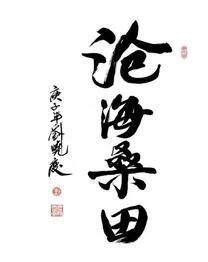 沧海桑田
庚子年刘晓庆